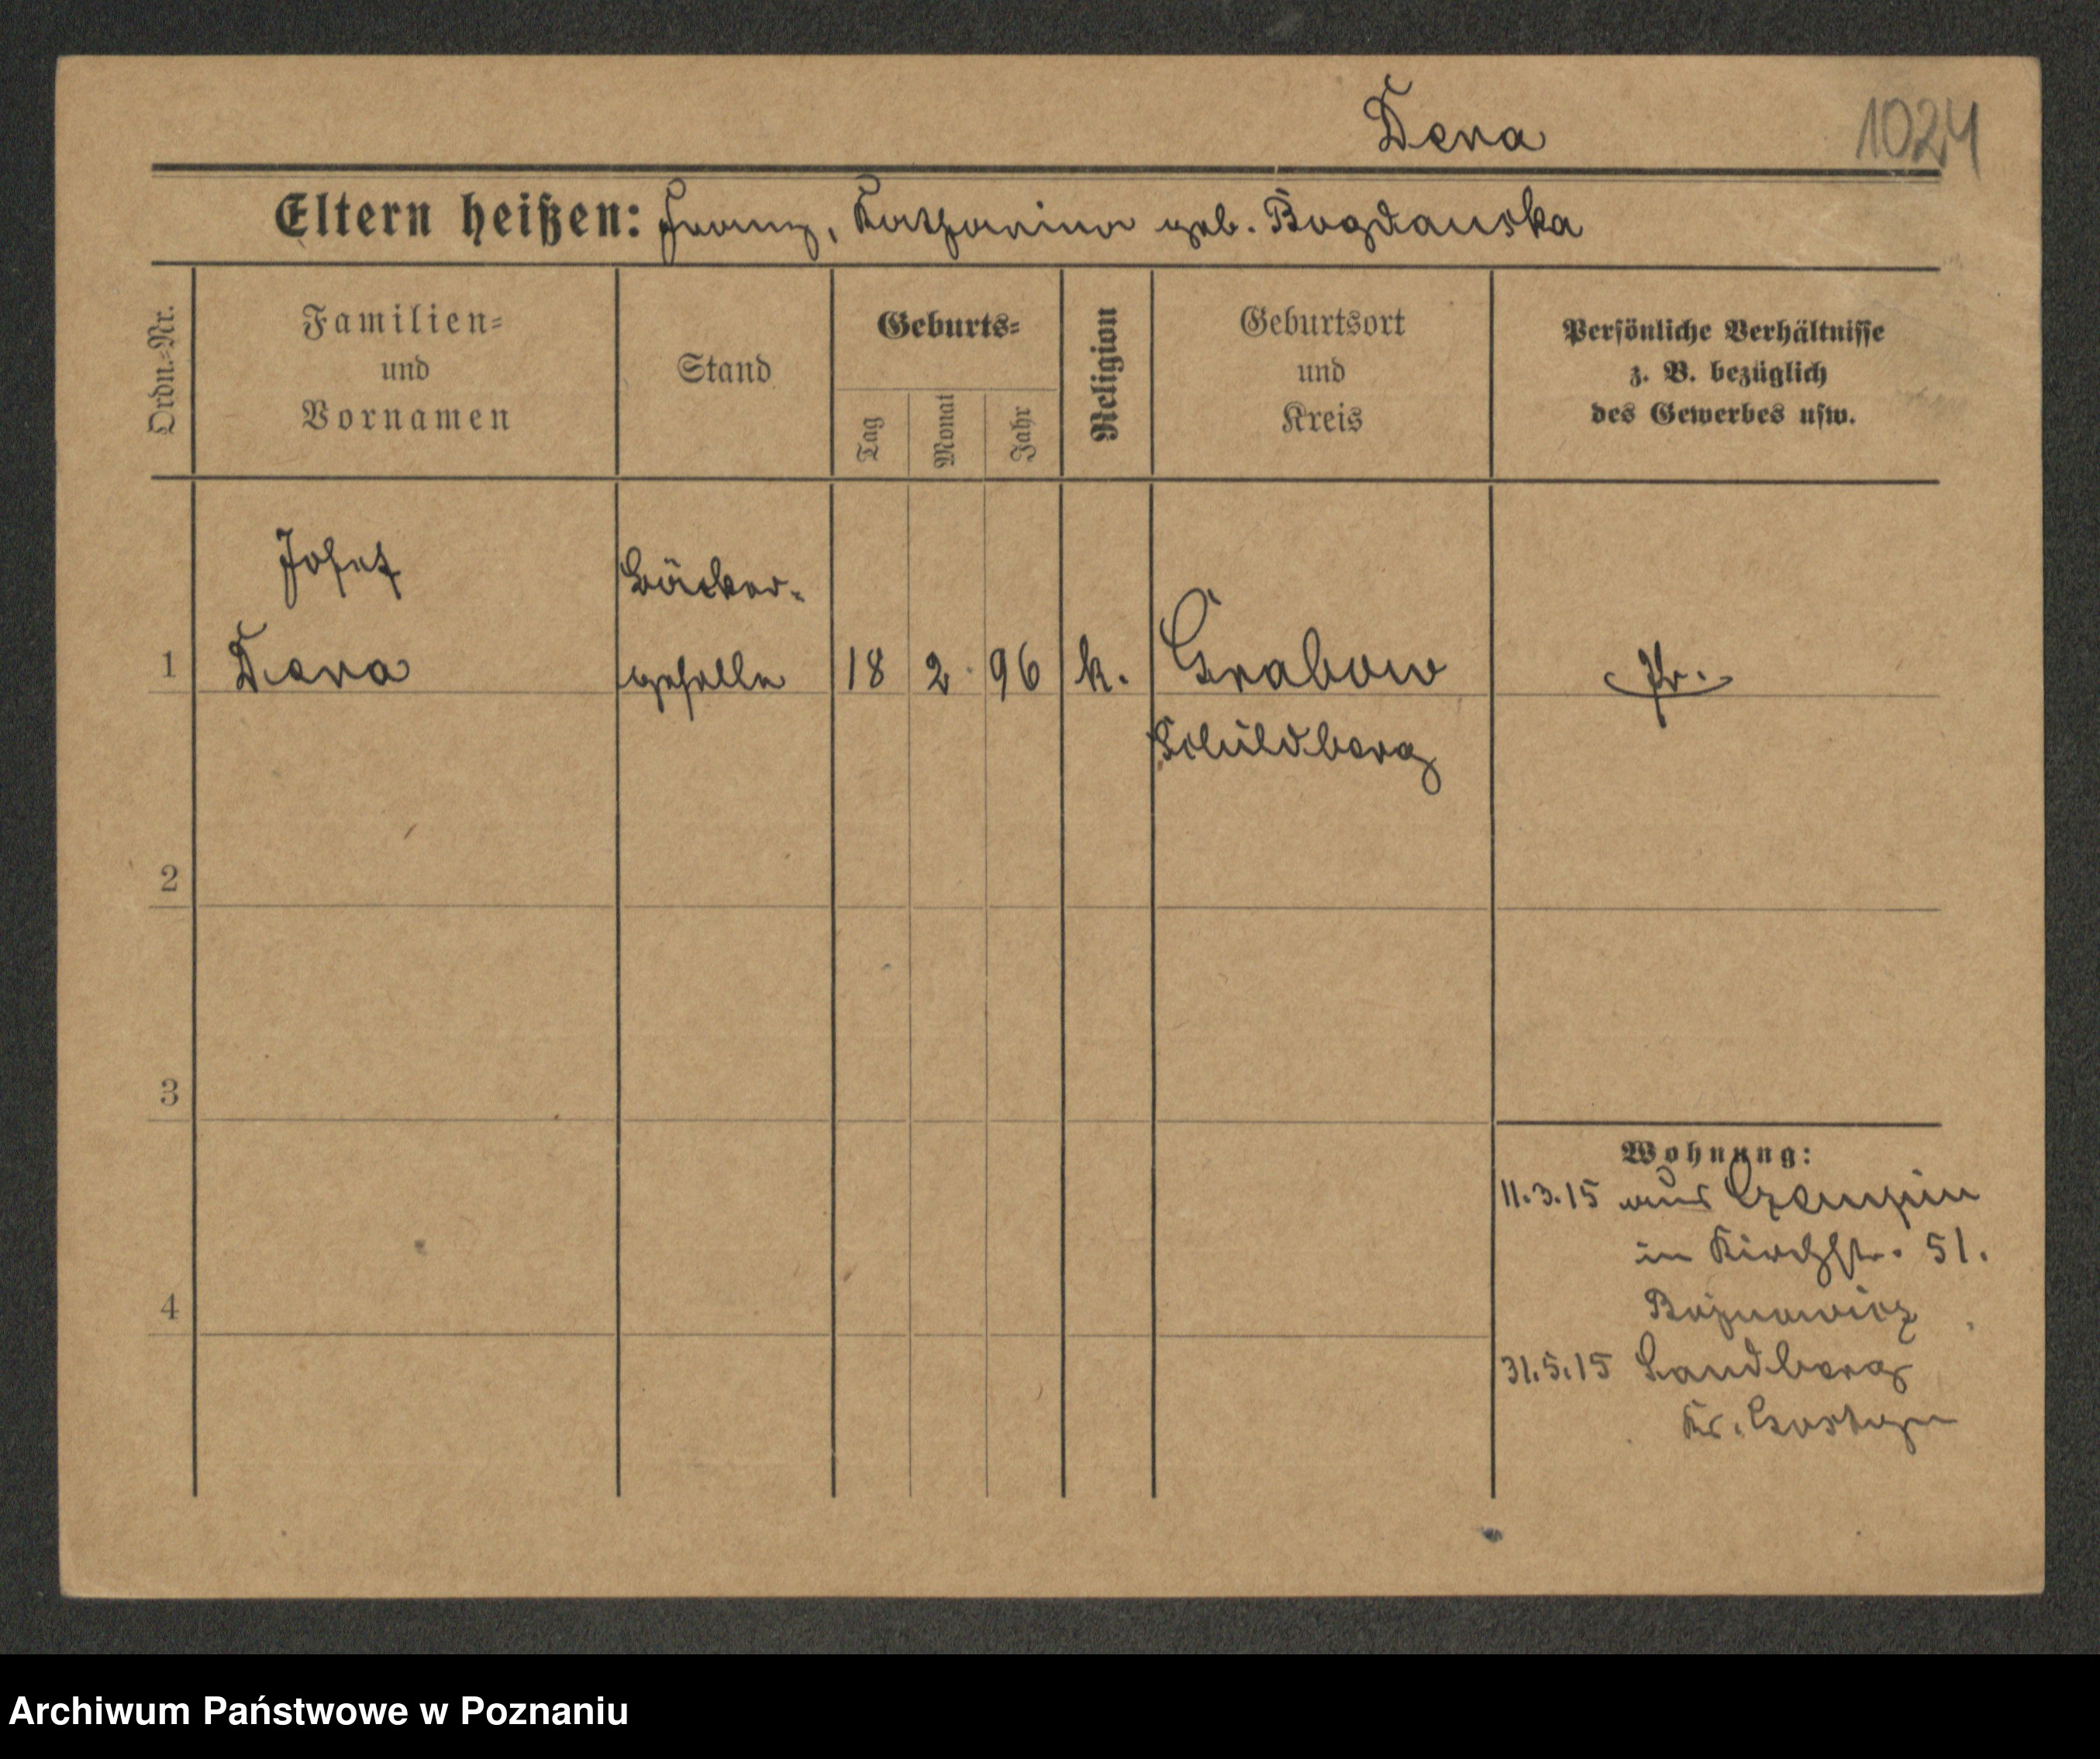 Dera
1024
Eltern heißen: Franz, Katharina geb. Bogdanska
Ordn.-Nr.
Familien-
und
Vornamen
Stand
Geburts-
Tag
Monat
Jahr
Religion
Geburtsort
und
Kreis
Persönliche Verhältnisse
z. B. bezüglich
des Gewerbes usw.
Josef
Bäcker-
1 Dera geselle 18 2. 96 k. Grabow Pr.
Schildberg
2
3
4
Wohnung:
11.3.15 aus Czempin
in Kirchstr. 51.
31.5.15 Sandberg
Kr. Gostyn
Archiwum Państwowe w Poznaniu